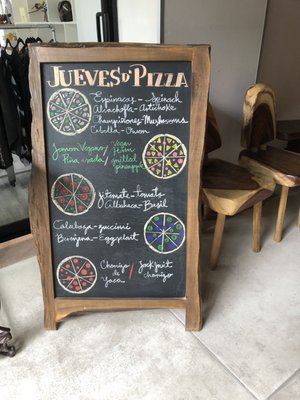 JUEVES D' PIZZA
Espinacas - Spinach
Alcachofa - Artichoke
Champiñones - Mushrooms
Cebolla - Onion
Jamon Vegano / Vegan ham
Piña asada / grilled pineapple
Jitomate - tomato
Albahaca - Basil
Calabaza - zuccini
Berenjena - Eggplant
Chorizo de Yaca / Jackfruit chorizo